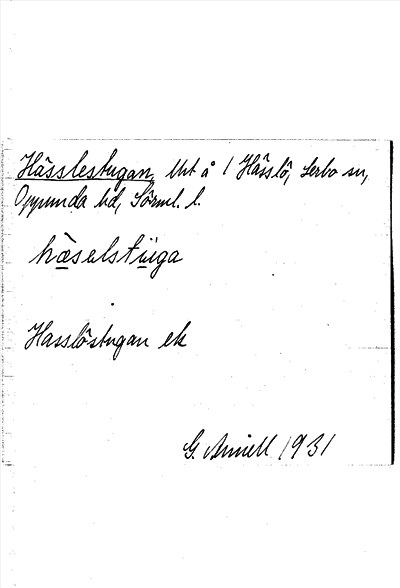 Hässlestugan, lht å 1 Hässlö, Lerbo sn,
Oppunda hd, Sörml. l.
hæselstu̇ga
Hasslöstugan ek
G. Arnell 1931